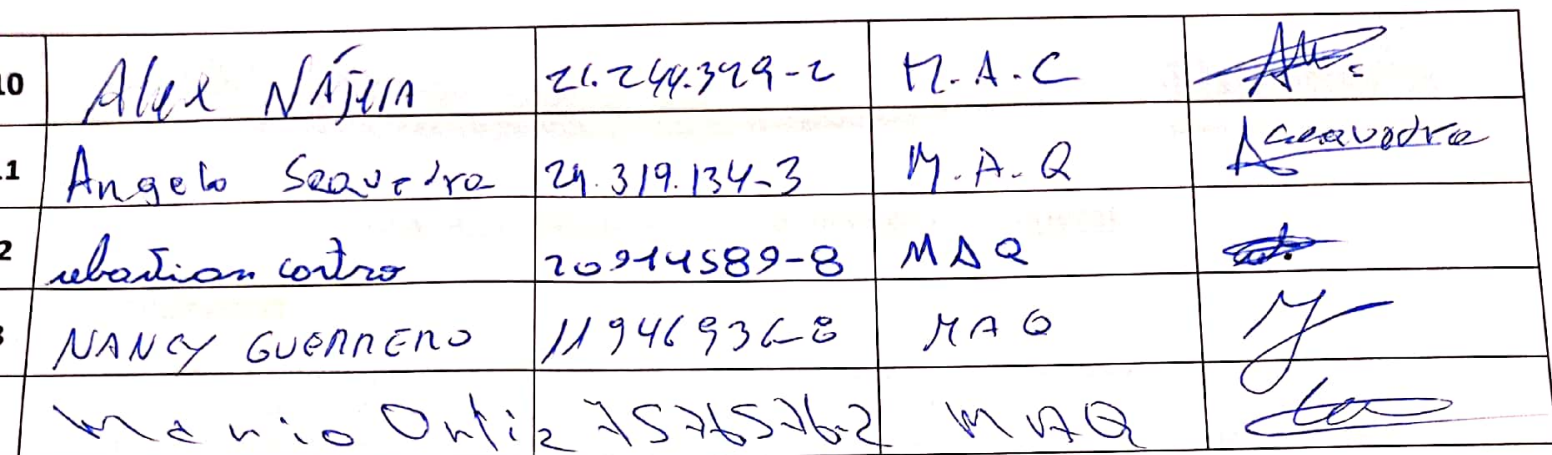 10 Alex NÁJERA 21.244.329-2 M.A.C
11 Angelo Saavedra 21.319.134-3 M.A.Q Acaavedra
2 sebastian castro 20914589-8 MAQ
3 NANCY GUERRERO 11946936-8 MAQ
Mario Ortiz 15765776-2 MAQ